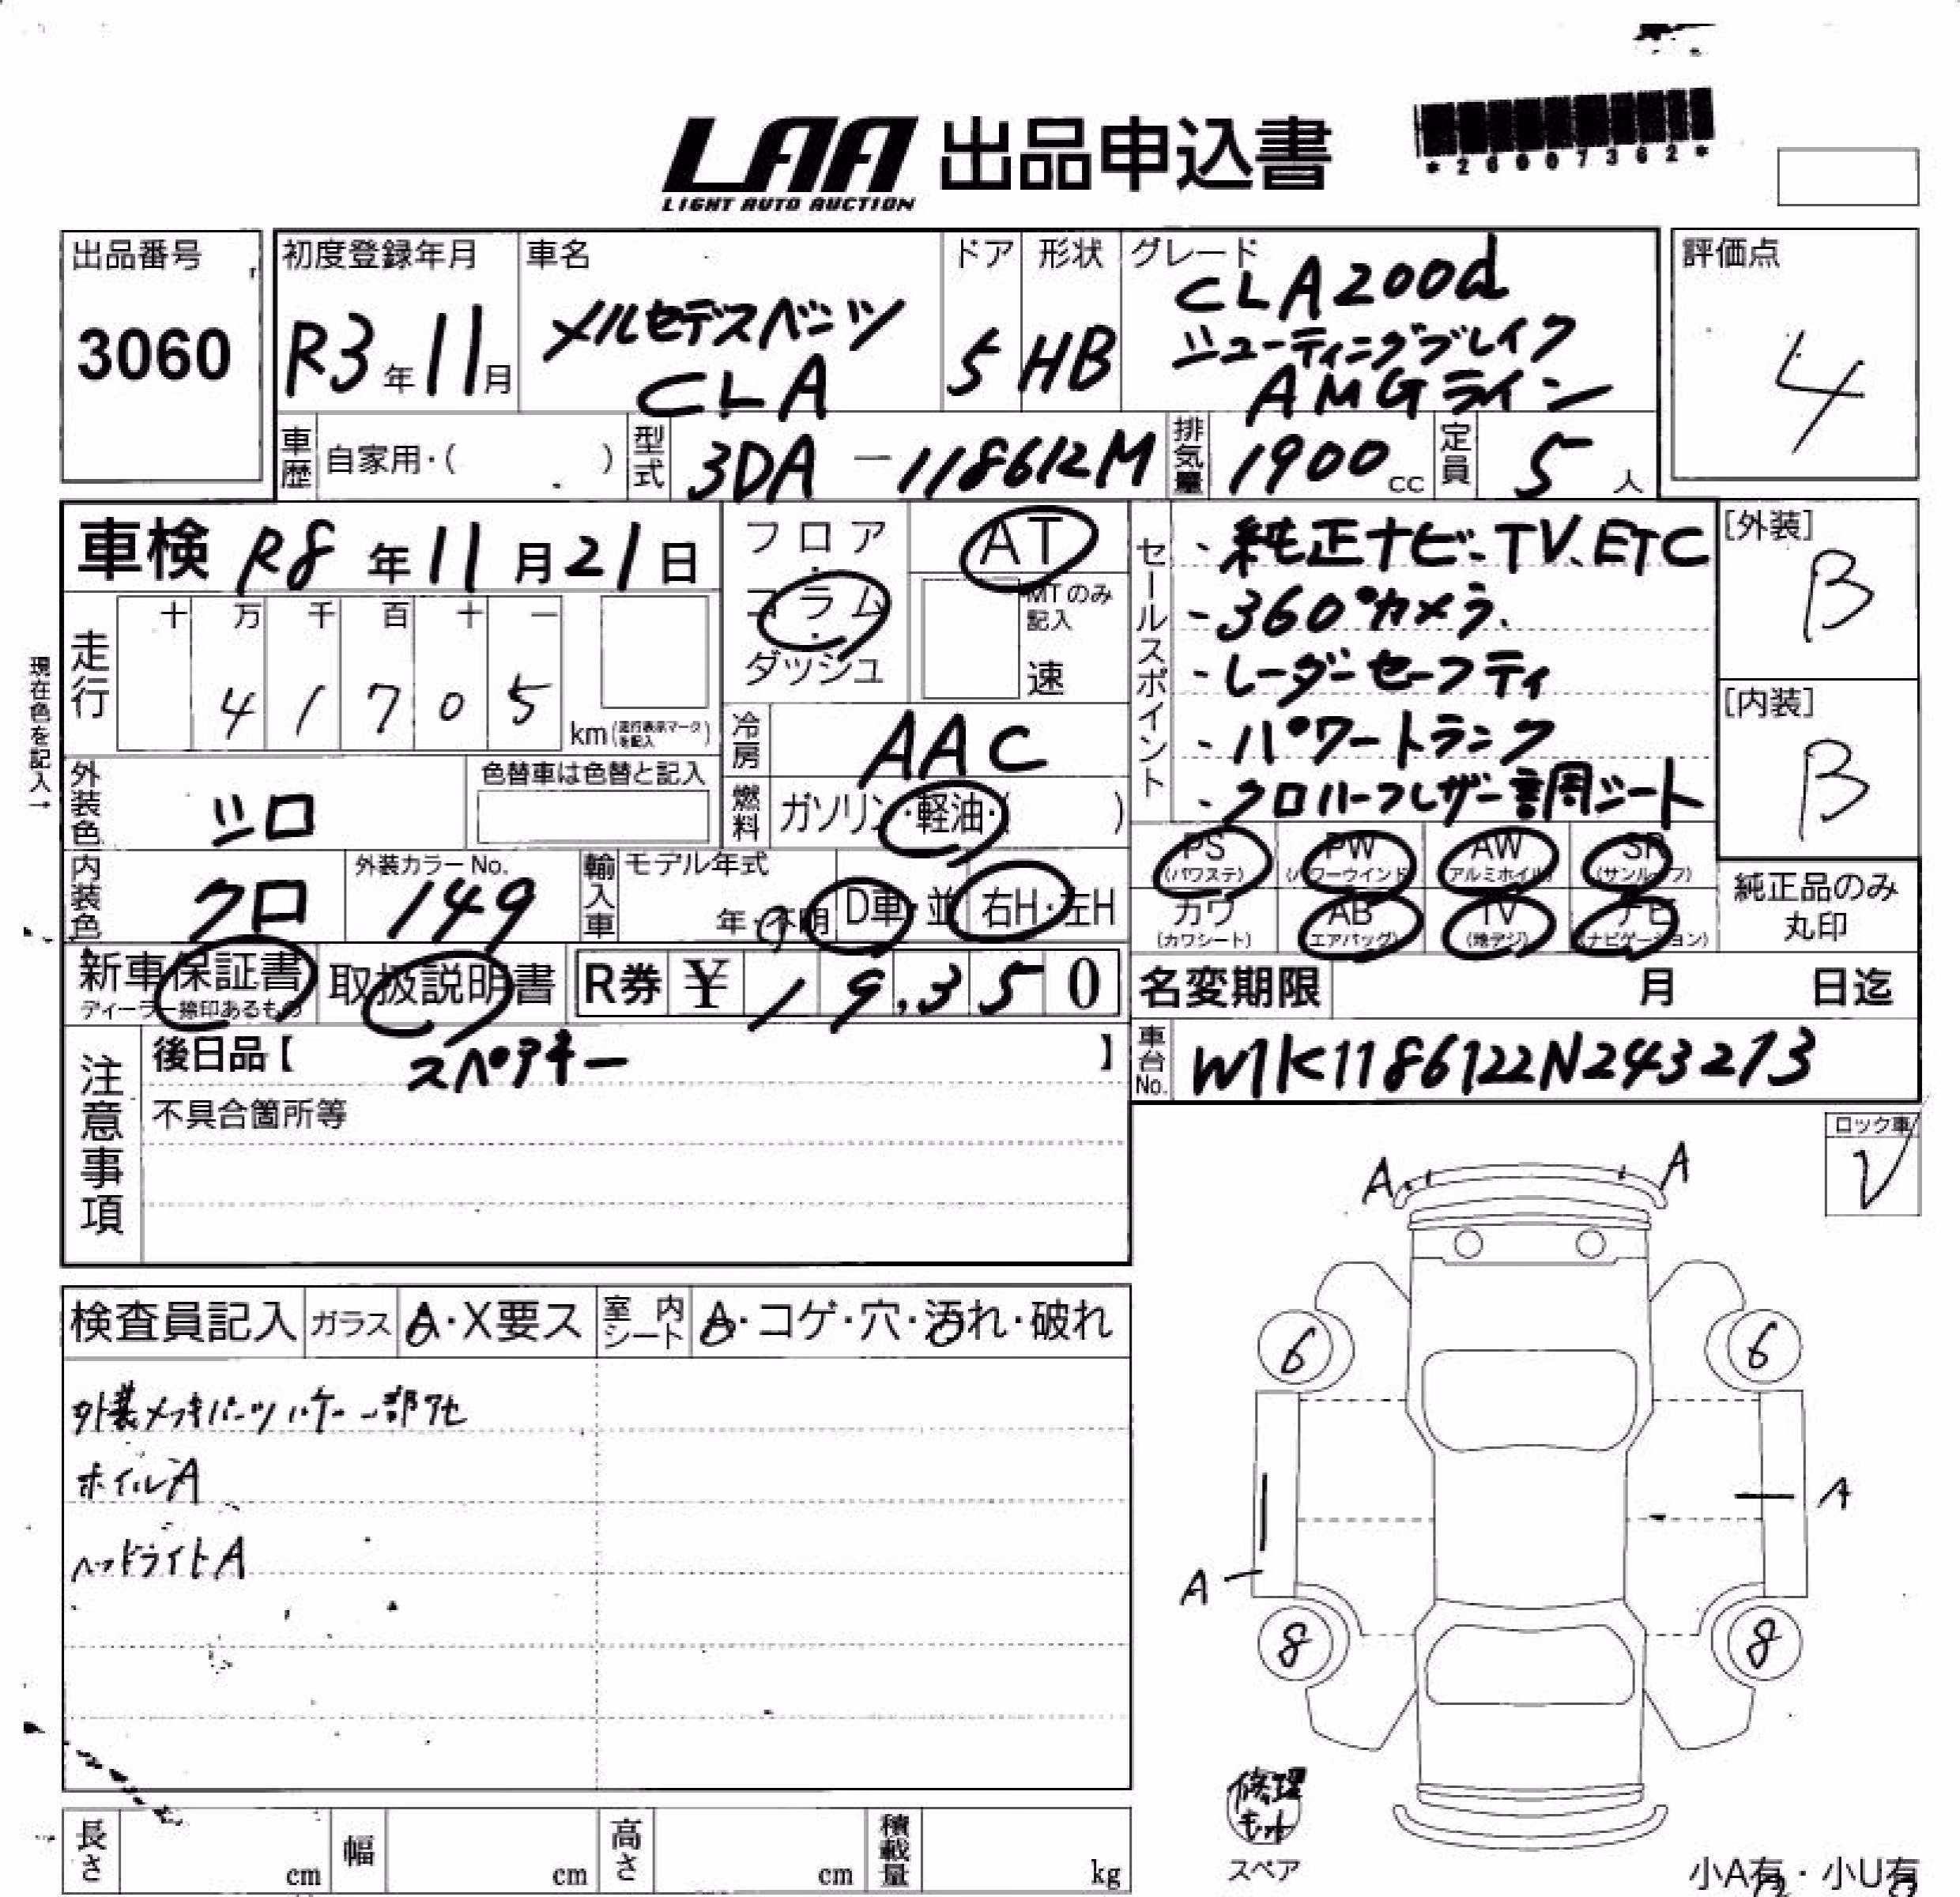 LAA 出品申込書
LIGHT AUTO AUCTION
*26007362*
出品番号
3060
初度登録年月
R3年11月
車名
メルセデスベンツ
CLA
ドア
5
形状
HB
グレード
CLA200d
シューティングブレイク
AMGライン
評価点
4
車歴
自家用・( )
型式
3DA-118612M
排気量
1900cc
定員
5人
車検 R8年11月21日
フロア
・
コラム
・
ダッシュ
AT
MTのみ
記入
速
セールスポイント
・純正ナビ、TV、ETC
・360°カメラ、
・レーダーセーフティ
・パワートランク
・クロハーフレザー調シート
[外装]
B
[内装]
B
現在色を記入→
走行
十 万 千 百 十 一
4 1 7 0 5
km(走行表示マークを記入)
冷房
AAC
外装色
シロ
色替車は色替と記入
燃料
ガソリン・軽油・( )
内装色
クロ
外装カラーNo.
149
輸入車
モデル年式
年・不明
D車・並
右H・左H
PS
(パワステ)
PW
(パワーウインド)
AW
(アルミホイル)
SR
(サンルーフ)
カワ
(カワシート)
AB
(エアバッグ)
TV
(地デジ)
ナビ
(ナビゲーション)
純正品のみ
丸印
新車保証書
ディーラー捺印あるもの
取扱説明書
R券 ¥ 19,350
名変期限 月 日迄
注意事項
後日品【 スペアキー 】
不具合箇所等
車台No.
W1K1186122N243273
ロック車
V
検査員記入
ガラス
A・X要ス
室内シート
A・コゲ・穴・汚れ・破れ
外装メッキパーツハゲ一部アセ
ホイルA
ヘッドライトA
A
A
6
6
A
A
8
8
修理
キット
スペア
小A有・小U有
長さ
cm
幅
cm
高さ
cm
積載量
kg